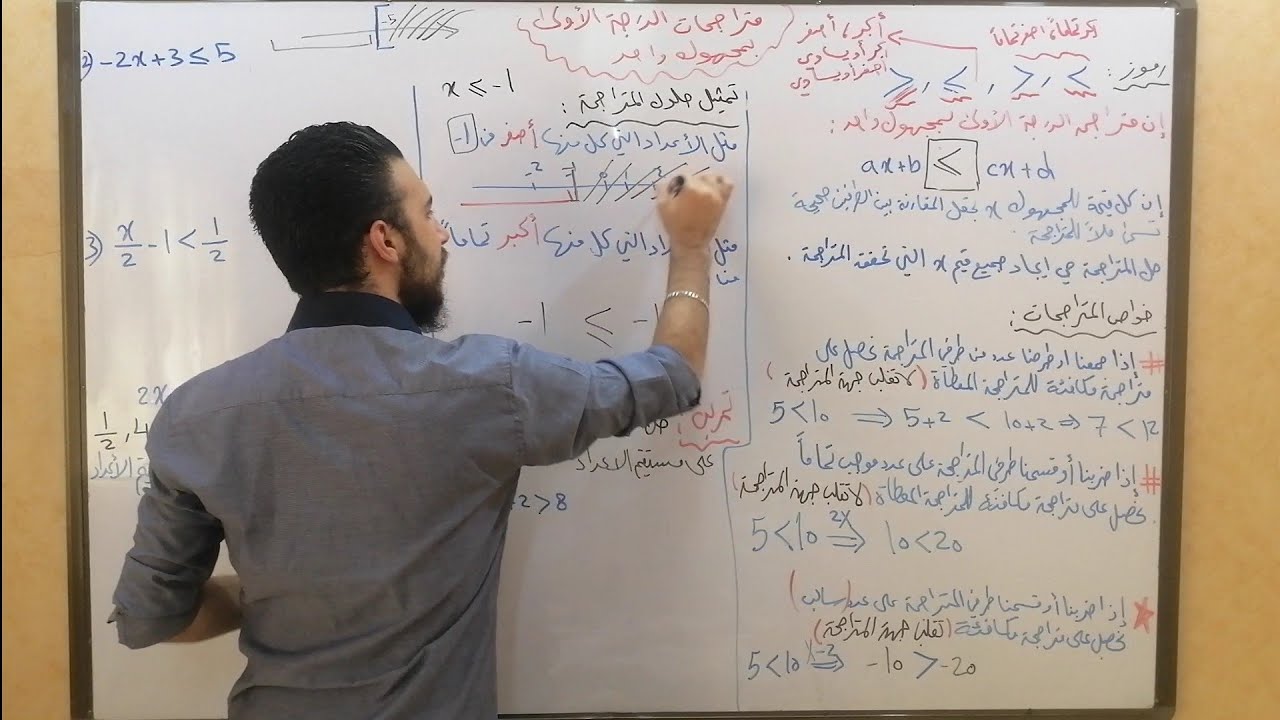 متراجحات الدرجة الأولى
بمجهول واحد
أكبر تماماً، أصغر تماماً
أكبر، أصغر
أكبر أو يساوي
أصغر أو يساوي
رموز: > , ≤ , > , <
إن متراجحة الدرجة الأولى بمجهول واحد:
ax+b ≤ cx+d
إن كل قيمة للمجهول x يجعل المقارنة بين الطرفين صحيحة
تسمى حلاً للمتراجحة.
حل المتراجحة هي إيجاد جميع قيم x التي تحقق المتراجحة.
خواص المتراجحات:
# إذا جمعنا أو طرحنا عدد من طرفي المتراجحة نحصل على
متراجحة مكافئة للمتراجحة المعطاة (لا تقلب جهة المتراجحة)
5<10 ⇒ 5+2 < 10+2 ⇒ 7 < 12
# إذا ضربنا أو قسمنا طرفي المتراجحة على عدد موجب تماماً
نحصل على متراجحة مكافئة للمتراجحة المعطاة (لا تقلب جهة المتراجحة)
5<10 2X⇒ 10<20
إذا ضربنا أو قسمنا طرفي المتراجحة على عدد (سالب)
نحصل على متراجحة مكافئة (تقلب جهة المتراجحة)
5<10 X-2⇒ -10 > -20
-5
x ≤ -1
تمثيل حلول المتراجحة:
مثل الأعداد التي كل منها أصغر من -1
-2 -1 0 1
مثل
التي كل منها أكبر تماماً
-1 ≤ -1
تمرين:
على مستقيم الأعداد
+2>8
2) -2x+3 ≤ 5
3) x/2 -1 < 1/2
2x
1/2 , 4
الأعداد